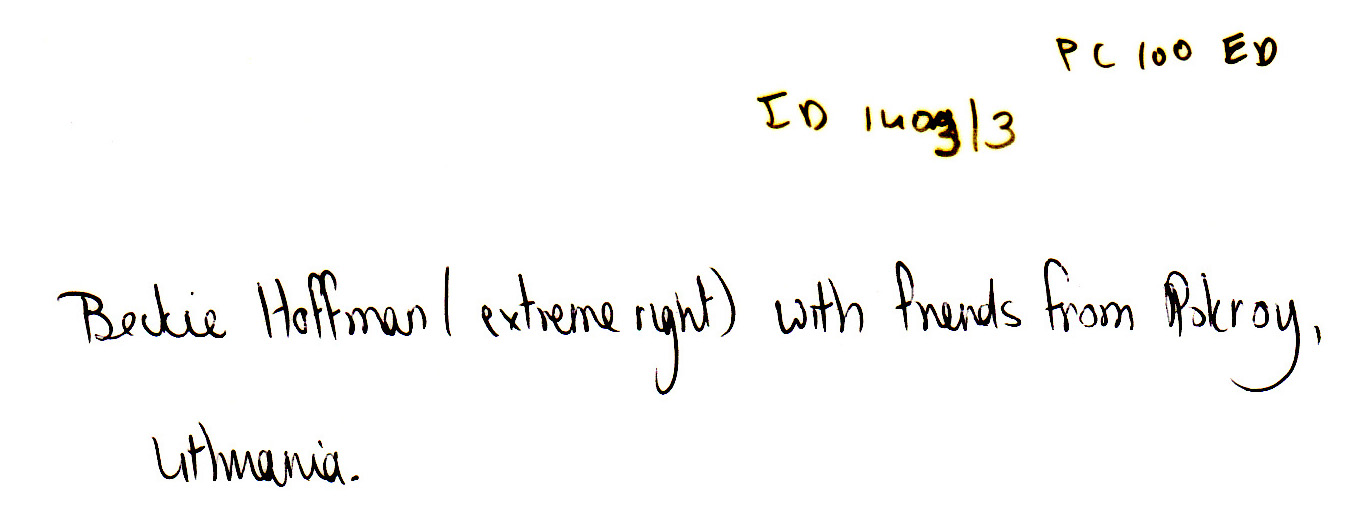 PC 100 ED
ID 1409/3
Beckie Hoffman (extreme right) with friends from Pokroy,
Lithuania.